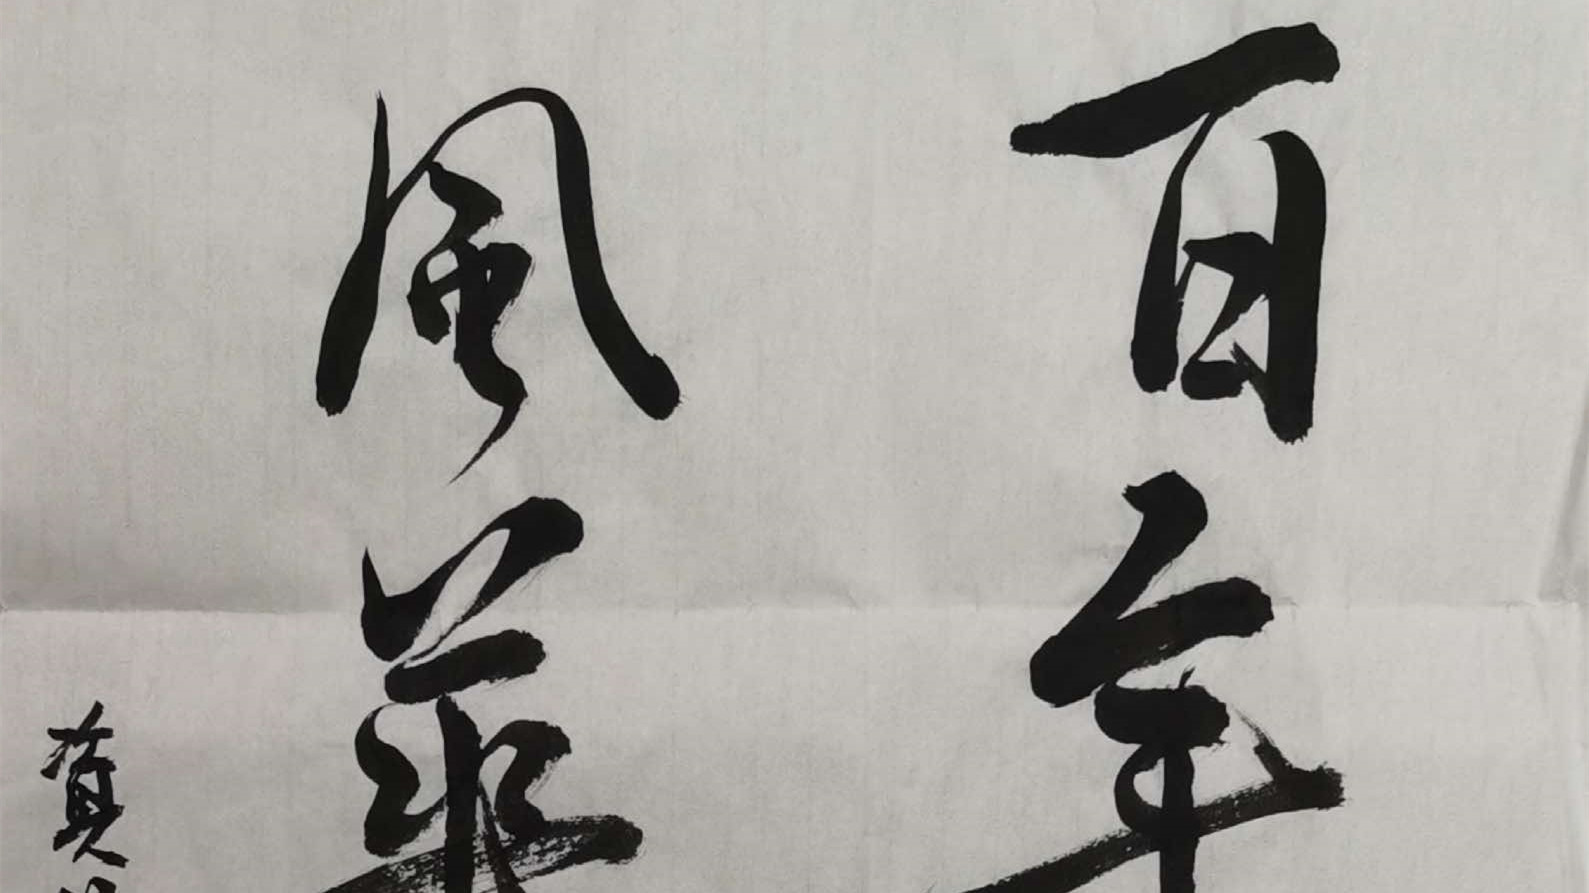 百年
風華
黄